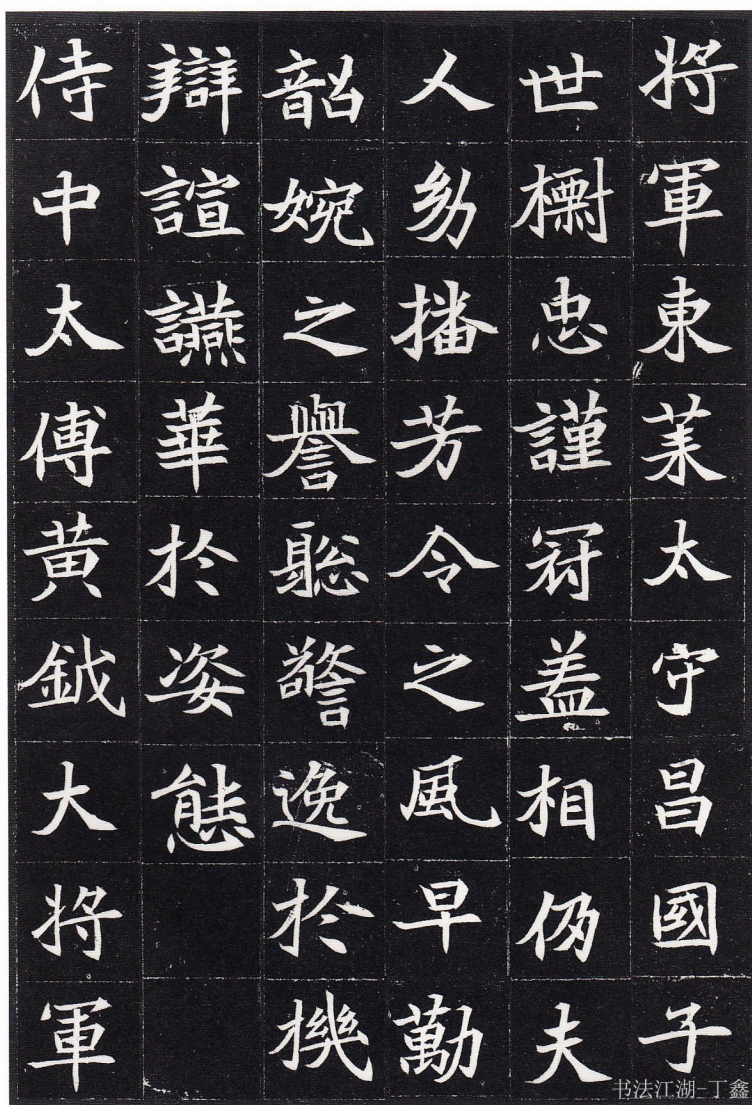 将軍東莱太守昌國子
世樹忠謹冠盖相仍夫
人幼播芳令之風早勤
韶婉之譽聡警逸於機
辯諠讌華於姿態
侍中太傅黄鉞大将軍
书法江湖-丁鑫